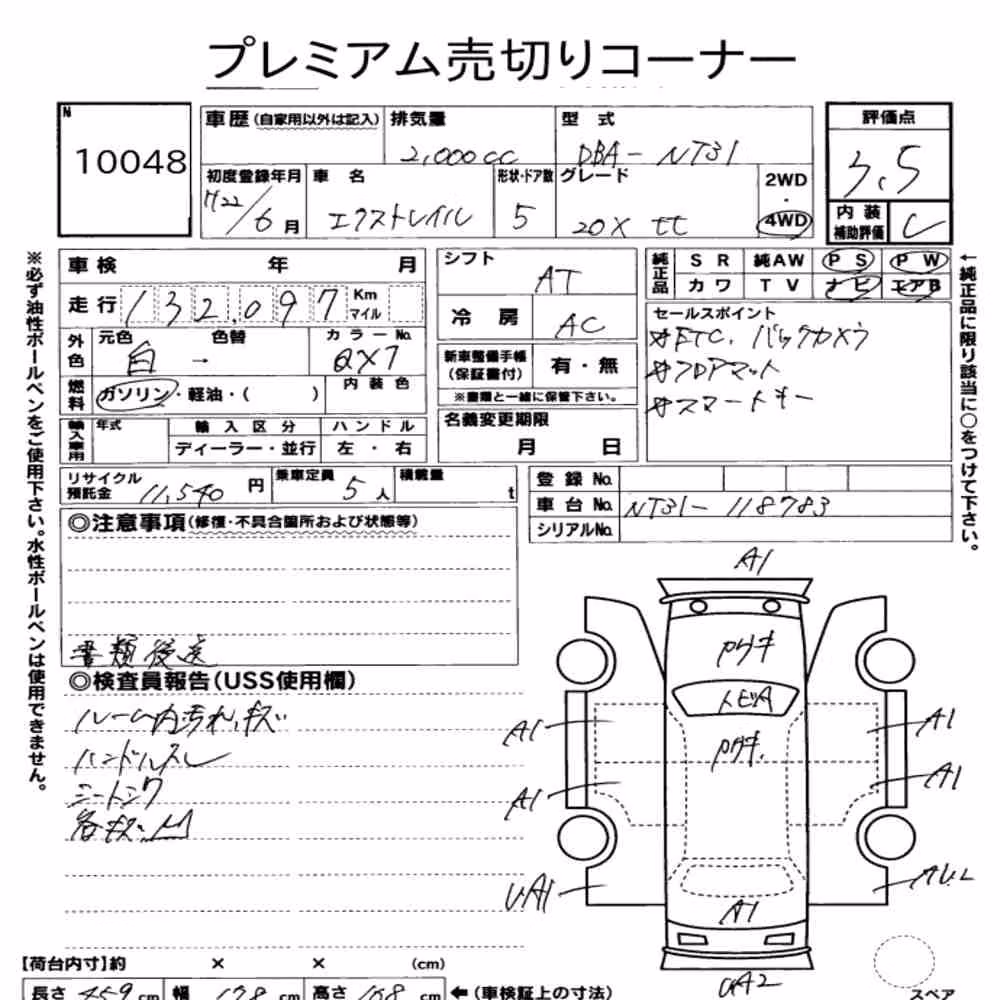 プレミアム売切りコーナー
N
10048
車歴(自家用以外は記入) 排気量 2,000cc 型式 DBA-NT31
評価点 3.5
初度登録年月 H22/6月 車名 エクストレイル 形状・ドア数 5 グレード 20X tt 2WD・4WD
内装補助評価 C
車検 年 月
走行 132,097 Km マイル
外色 元色 白 → 色替 カラーNo. QX1
燃料 ガソリン・軽油・( ) 内装色
輸入車用 年式 輸入区分 ディーラー・並行 ハンドル 左・右
シフト AT
冷房 AC
新車整備手帳(保証書付) 有・無
※書類と一緒に保管下さい。
名義変更期限 月 日
純正品 SR 純AW PS PW
カワ TV ナビ エアB
セールスポイント
#ETC, バックカメラ
#フロアマット
#スマートキー
リサイクル預託金 11,540円 乗車定員 5人 積載量 t
登録No.
車台No. NT31-118783
シリアルNo.
◎注意事項(修復・不具合箇所および状態等)
書類後送
◎検査員報告(USS使用欄)
ルーム内汚れ,キズ
ハンドルスレ
シートシワ
各キズ,凹
A1
アリキ
トビA
アリキ.
A1
A1
A1
A1
UA1
AU2
A1
UA2
スペア
【荷台内寸】約 × × (cm)
長さ 459cm 幅 178cm 高さ 168cm ←(車検証上の寸法)
※必ず油性ボールペンをご使用下さい。水性ボールペンは使用できません。
←純正品に限り該当に○をつけて下さい。